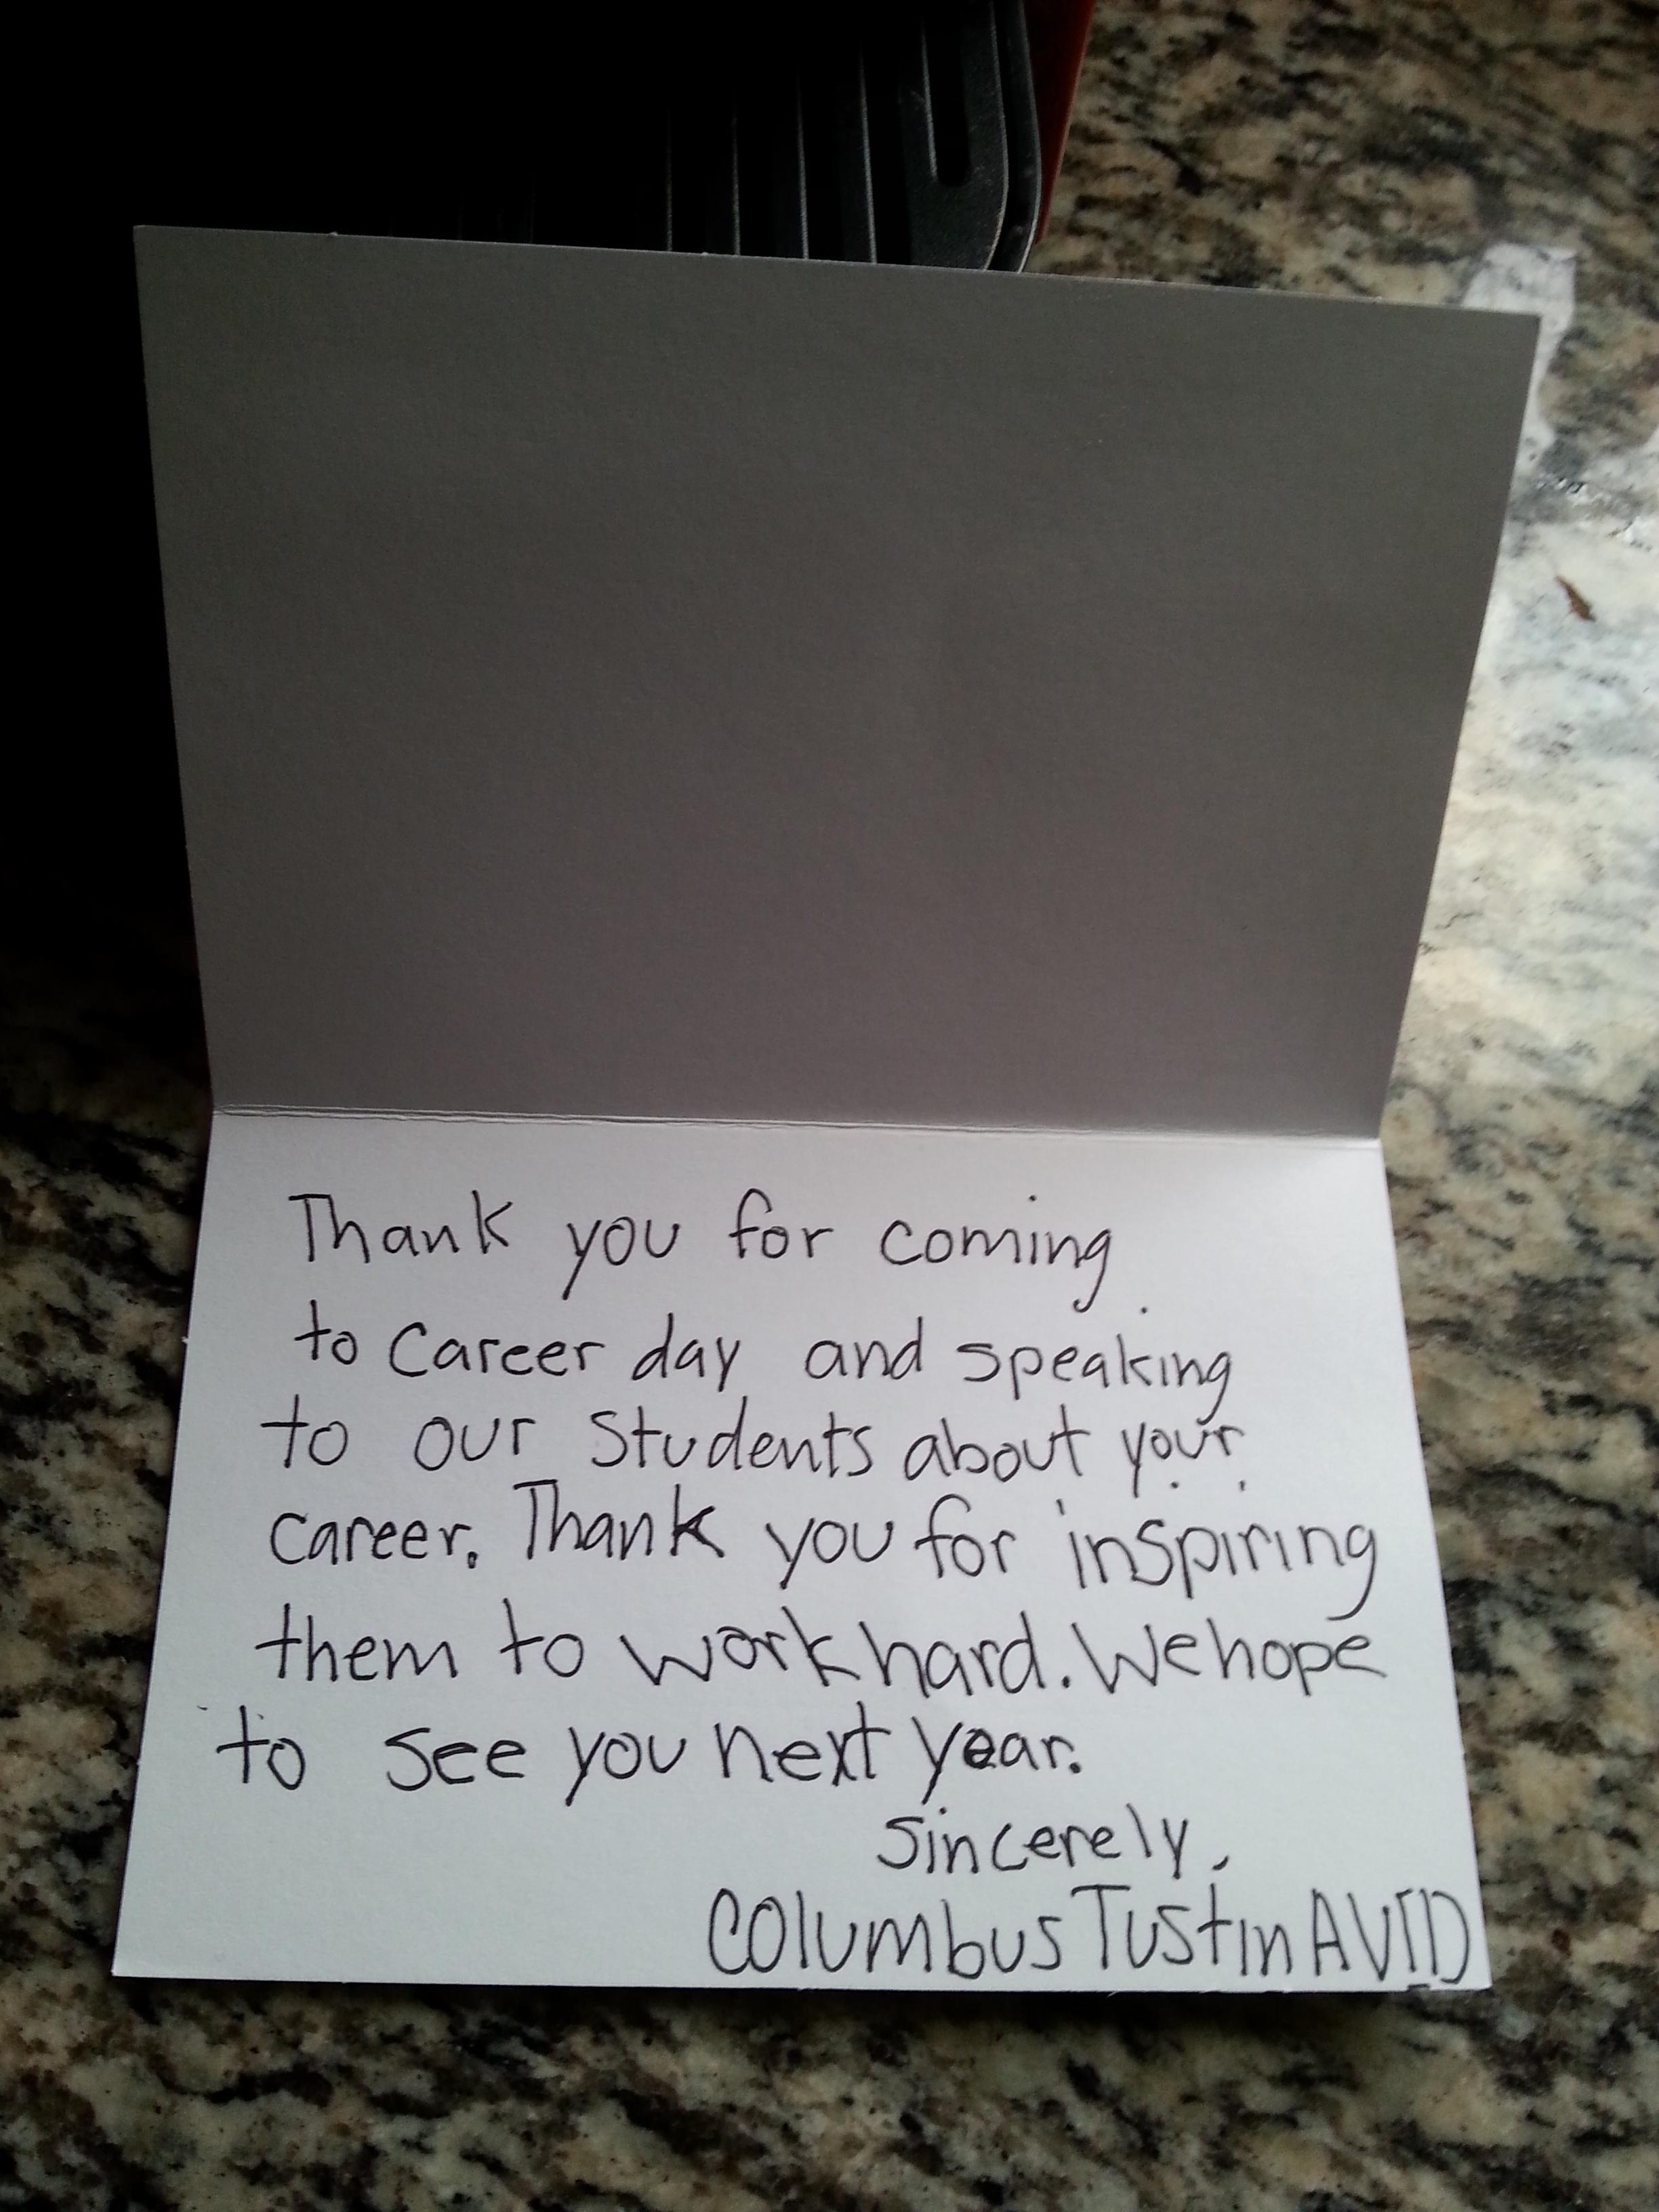 Thank you for coming
to Career day and speaking
to our Students about your
career. Thank you for inspiring
them to work hard. We hope
to see you next year.
Sincerely,
Columbus Tustin AVID